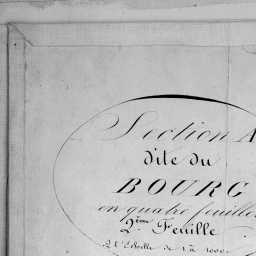 Section A
dite du
BOURG
en quatre feuilles
2ème Feuille
à l'Echelle de 1 à 1000